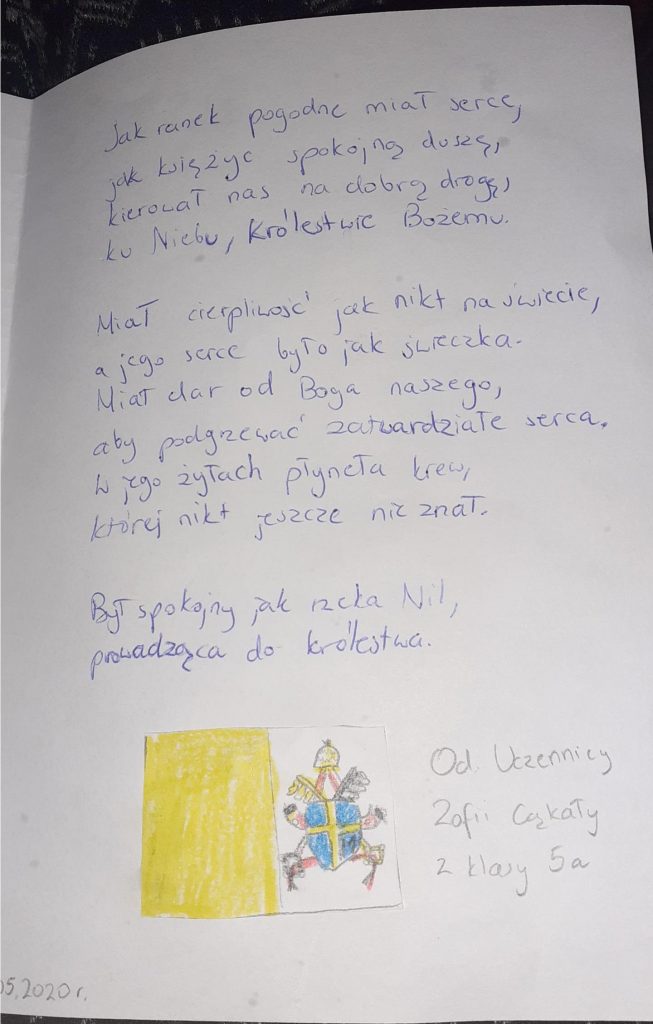 Jak ranek pogodne miał serce,
jak księżyc spokojną duszę,
kierował nas na dobrą drogę,
ku Niebu, Królestwie Bożemu.
Miał cierpliwość jak nikt na świecie,
a jego serce było jak świeczka.
Miał dar od Boga naszego,
aby podgrzewać zatwardziałe serca.
W jego żyłach płyneła krew,
której nikt jeszcze nie znał.
Był spokojny jak rzeka Nil,
prowadząca do królestwa.
Od Uczennicy
Zofii Cąkały
z klasy 5a
05.2020 r.